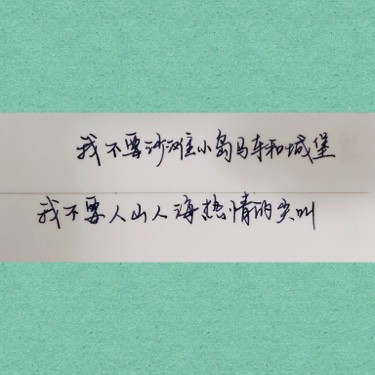 我不要沙滩小岛马车和城堡
我不要人山人海热情的尖叫